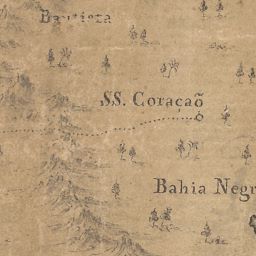 Bautista
SS. Coração
Bahia Negr